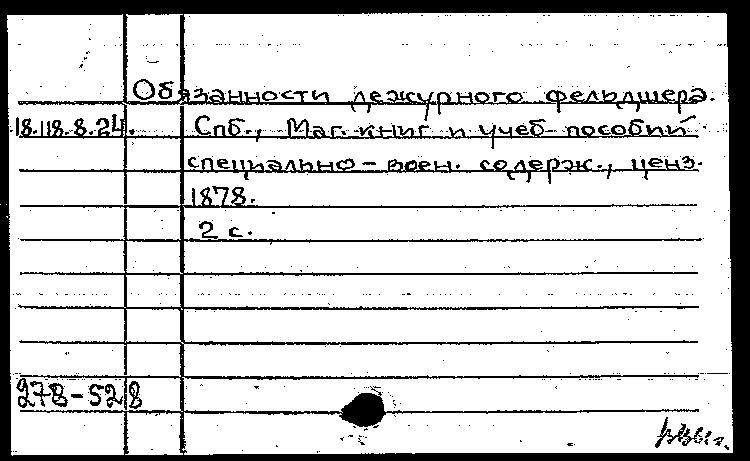 Обязанности дежурного фельдшера.
18.118.8.24. Спб., Маг. книг и учеб. пособий
специально-воен. содерж., ценз.
1878.
2 с.
278-528